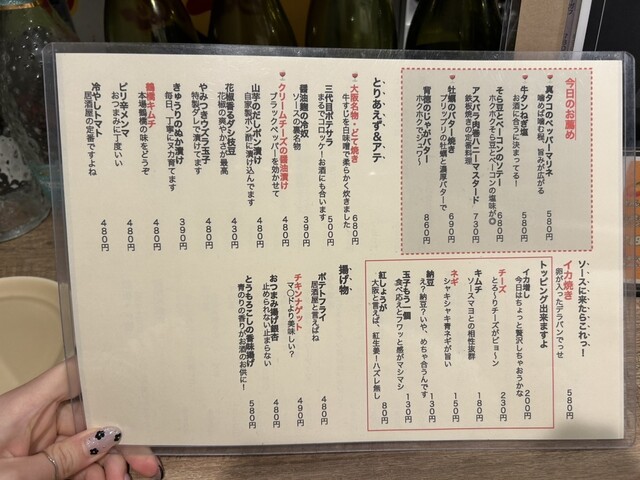 今日のお薦め
真タコのペッパーマリネ
噛めば噛む程、旨みが広がる
580円
牛タンねぎ塩
お酒に合うに決まってる!
580円
そら豆とベーコンのソテー
ホクホクそら豆とベーコンの塩味が◎
680円
アスパラ肉巻ハニーマスタード
鉄板焼きの定番料理
730円
牡蠣のバター焼き
プリップリの牡蠣と濃厚バターで
690円
背徳のじゃがバター
ホクホクでジュワ〜
860円
とりあえず&アテ
大阪名物・どて焼き
牛すじを白味噌で柔らかく炊きました
680円
三代目ポテサラ
まるでコロッケ!お酒にも合います
500円
醤油麹の冷奴
ソースの裏名物
390円
クリームチーズの醤油漬け
ブラックペッパーを効かせて
480円
山芋のだしポン酢漬け
自家製ポン酢に漬け込んでます
480円
花椒香るザク切り枝豆
花椒の爽やかさが最高
430円
やみつきウズラ玉子
特製ダレで漬けてます
480円
きゅうりのぬか漬け
毎日、丁寧にヌカ育てます
390円
鶴橋キムチ
本場鶴橋の味をどうぞ
480円
ピリ辛メンマ
おつまみに丁度いい
480円
冷やしトマト
居酒屋の定番ですよね
480円
ソースに来たらこれっ!
イカ焼き
卵が入ったデラバンでっせ
580円
トッピング出来ますよ
イカ増し
今日はちょっと贅沢しちゃおうかな
200円
チーズ
とろ〜りチーズがビヨ〜ン
230円
キムチ
ソースマヨとの相性抜群
180円
ネギ
シャキシャキ青ネギが旨い
150円
納豆
え?納豆?いや、めちゃ合うんです
130円
玉子もう一個
食べ応えとフワッと感がマシマシ
130円
紅しょうが
大阪と言えば、紅生姜!ハズレ無し
80円
揚げ物
ポテトフライ
居酒屋と言えばね
480円
チキンナゲット
マ〇ドより美味しい?
490円
おつまみ揚げ銀杏
止められない止まらない
480円
とうもろこしの香味揚げ
青のりの香りがお酒のお供に!
580円